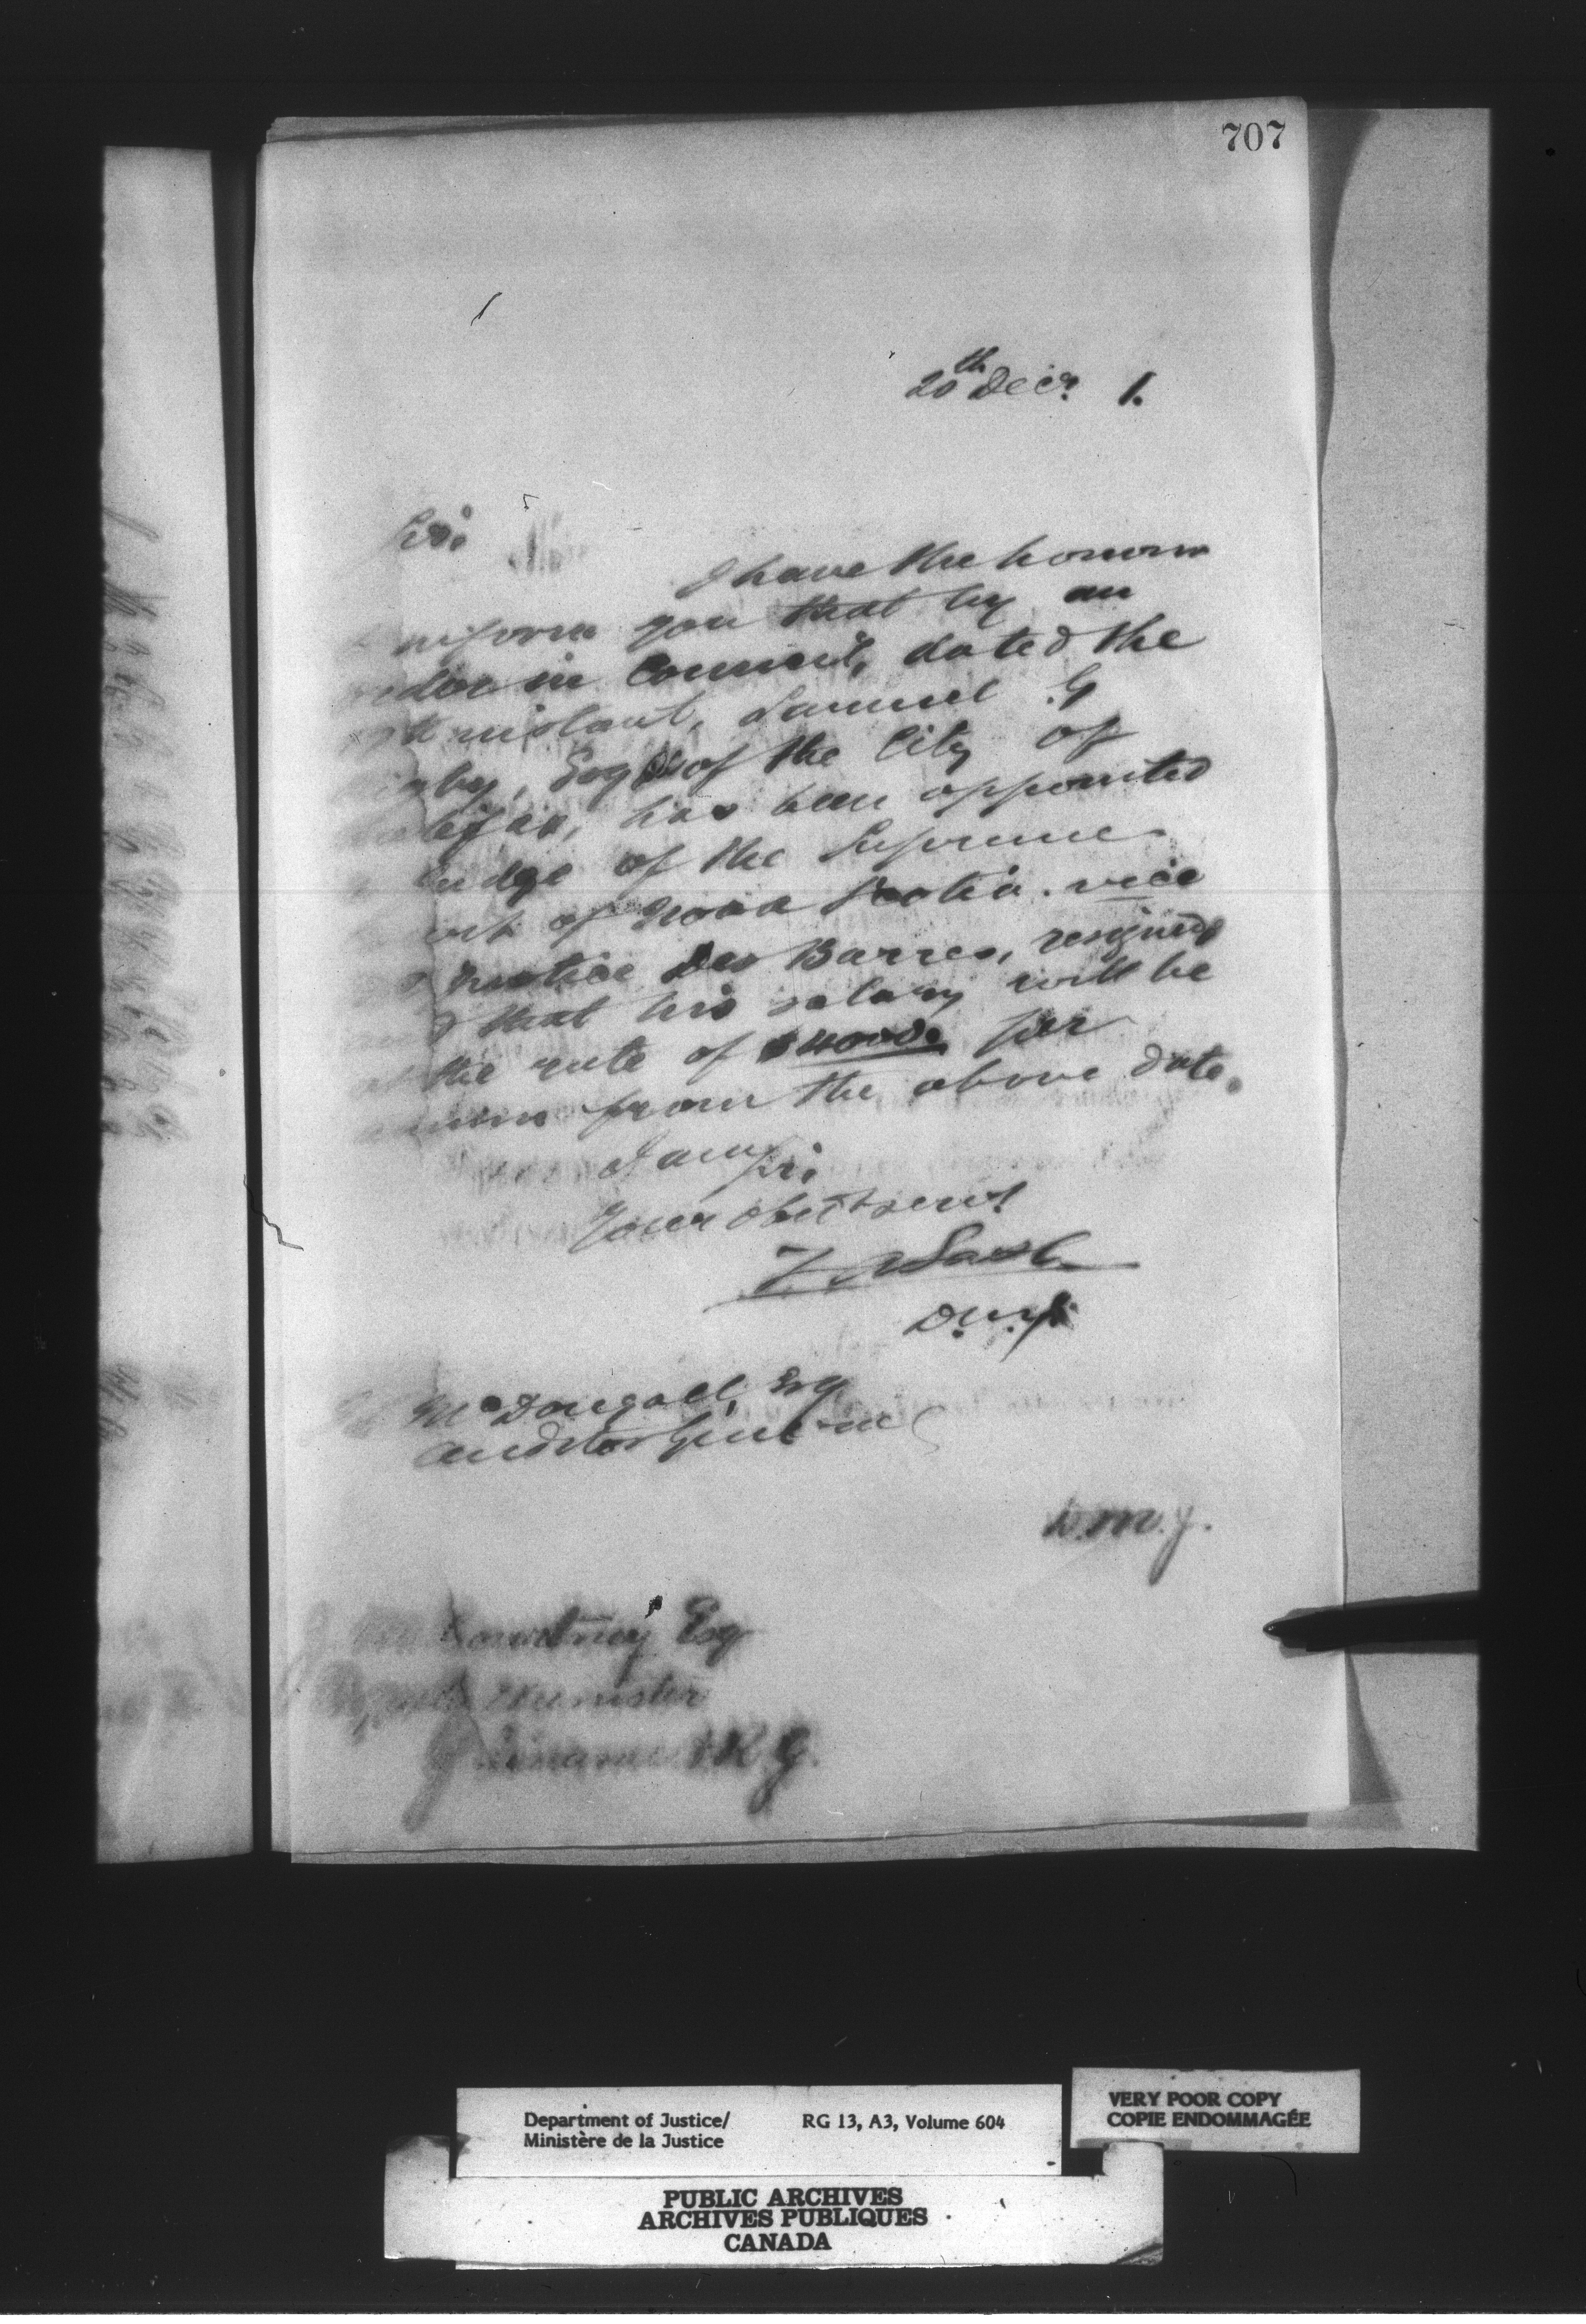 707
20th Decr. 1.
Sir,
I have the honour
inform you that by an
in Council, dated the
instant, Samuel G
Esqr of the City of
has been appointed
Judge of the Supreme
of Nova Scotia. vice
Justice Des Barres, resigned,
that his salary will be
the rate of $4000. per
from the above date.
I am Sir,
Your obedt servt
D.M.J.
McDougall, Esq
Auditor General
D.M.J.
Courtney Esq
Minister
Finance
VERY POOR COPY
COPIE ENDOMMAGÉE
Department of Justice/ RG 13, A3, Volume 604
Ministère de la Justice
PUBLIC ARCHIVES
ARCHIVES PUBLIQUES
CANADA